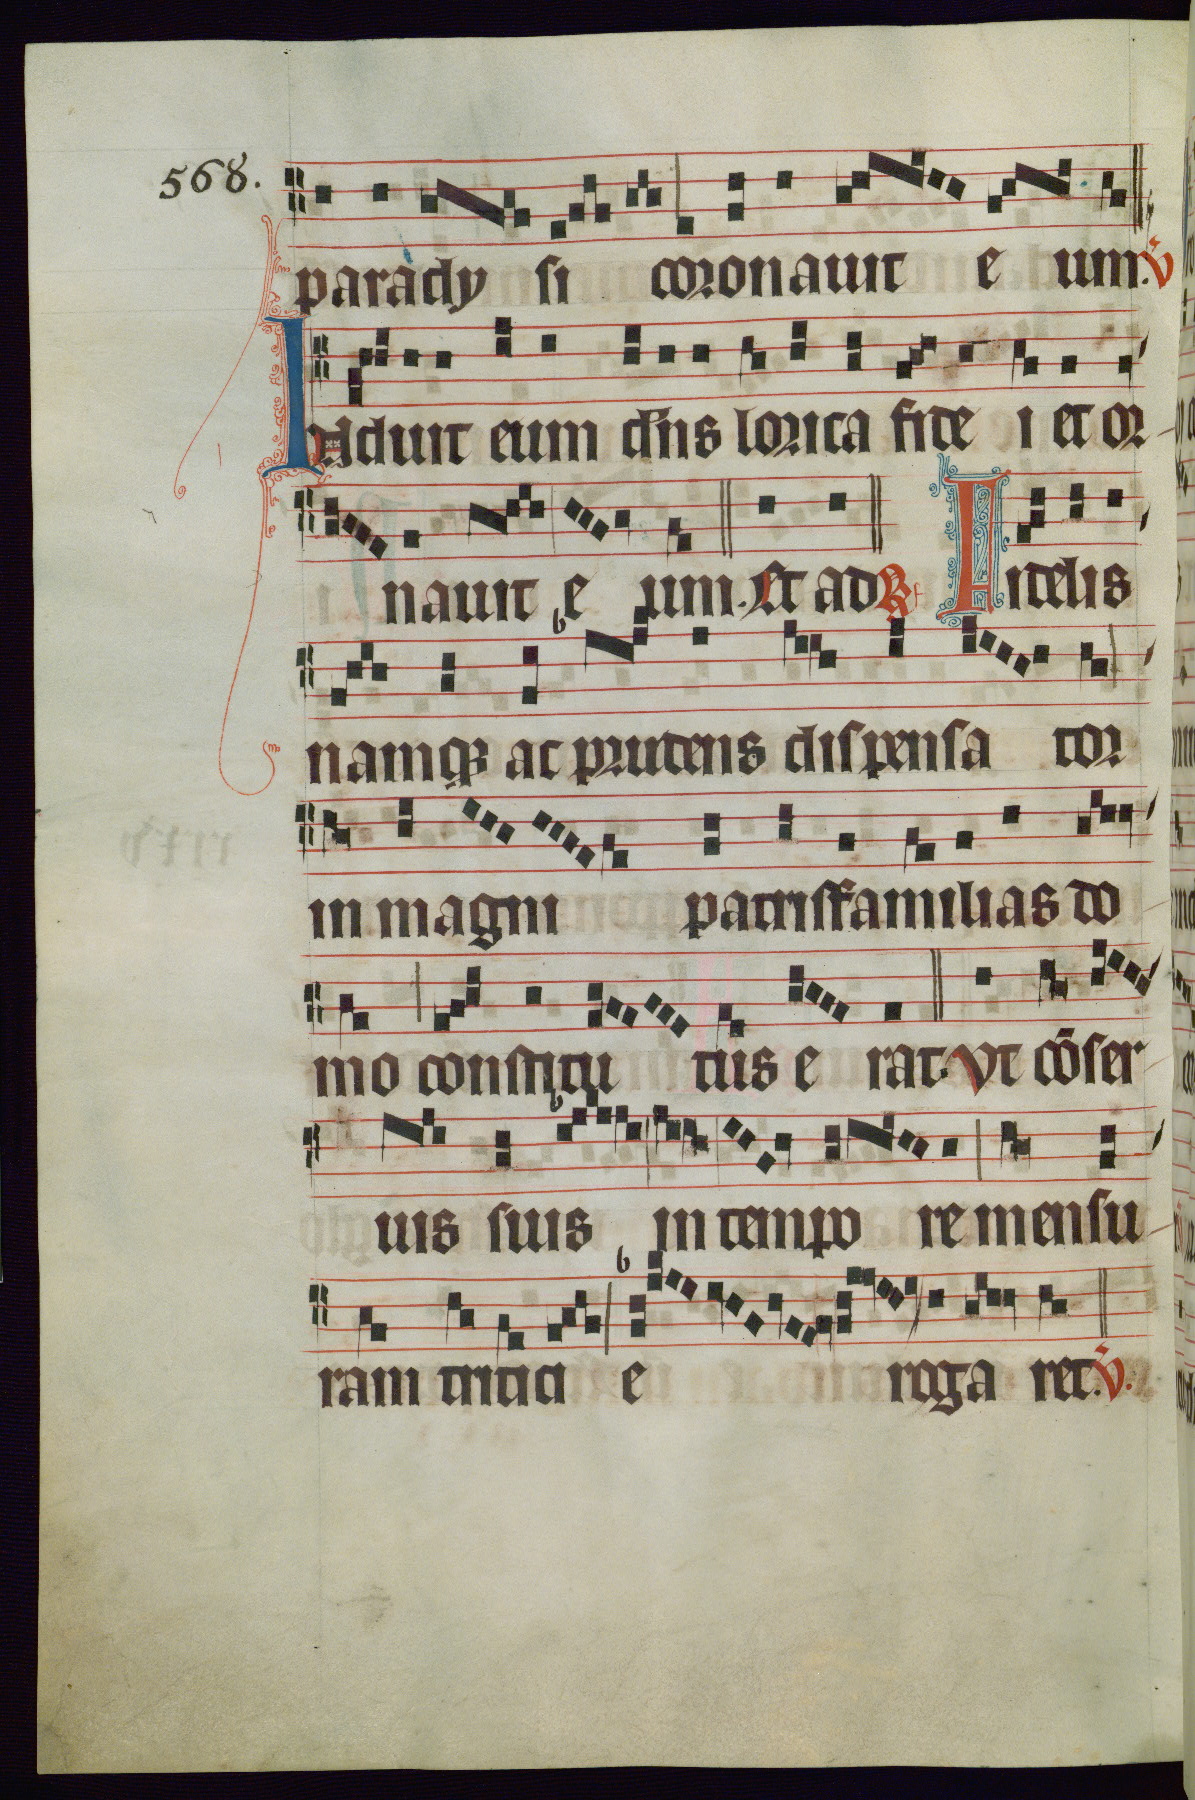 568.
parady si coronauit e um. V̄
Induit eum dn̄s lorica fide i et or
nauit e um. Et ad R Fidelis
namqꝫ ac prudens dispensa tor
in magni patrisfamilias do
mo constitu tus e rat. Vt cōser
uis suis in tempo re mensu
ram tritici e roga ret. V̄.